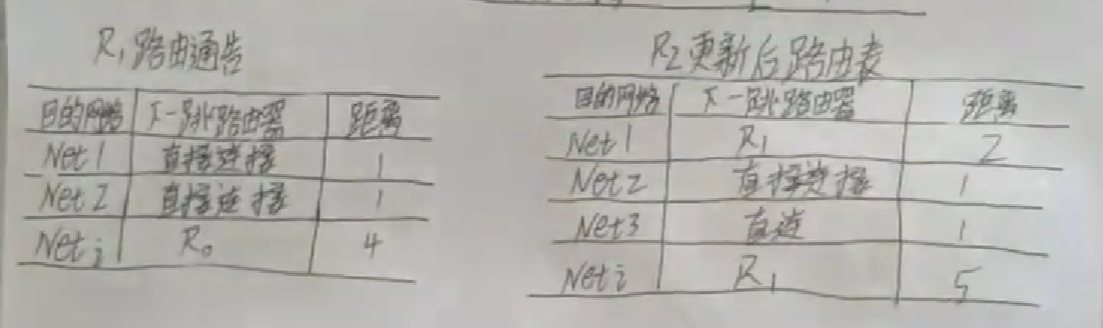 R₁路由通告
目的网络 下一跳路由器 距离
Net1 直接连接 1
Net2 直接连接 1
Netj R₀ 4
R₂更新后路由表
目的网络 下一跳路由器 距离
Net1 R₁ 2
Net2 直接连接 1
Net3 直连 1
Neti R₁ 5